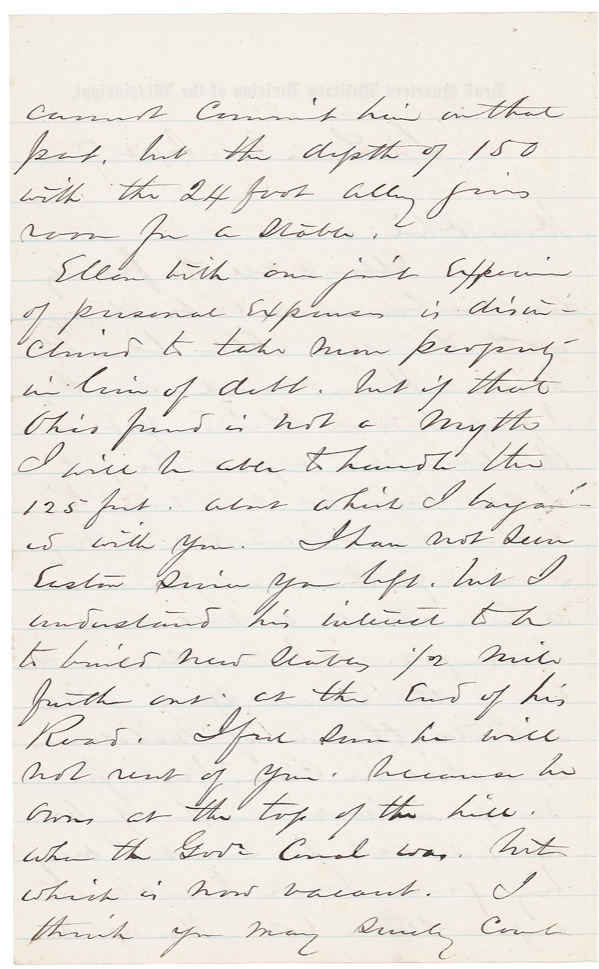 Head Quarters Military Division of the Mississippi
cannot commit him on that
part, but the depth of 150
with the 24 foot alley gives
room for a stable.
Ellen with our joint experience
of personal expenses is disin-
clined to take more property
in lieu of debt. but if that
Ohio fund is not a myth
I will be able to handle the
125 feet. about which I bargain-
ed with you. I have not seen
Easton since you left. but I
understand his interest to be
to build new stables 1/2 mile
further out. at the End of his
Road. I feel sure he will
not rent of you. because he
owns at the top of the hill.
when the Govt Corral was. but
which is now vacant. I
think you may surely count